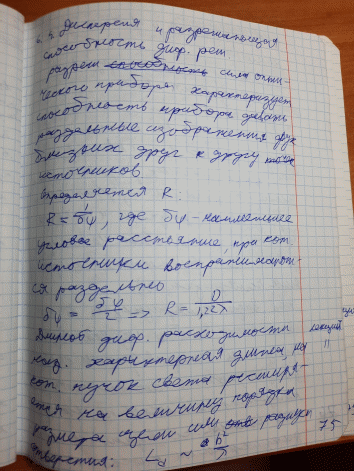 4. Дисперсия и разрешающая
способность диф. реш
разреш способность сила опти-
ческого прибора характеризует
способность прибора давать
раздельные изображения двух
близких друг к другу точек
источников.
Определяется R:
R = 1/δψ, где δψ - наименьшее
угловое расстояние, при кот.
источники воспринимают-
ся раздельно
δψ = δψ/2 => R = D/1,22λ
Длиной диф. расходимости
наз. характерная длина, на
кот. пучок света расширя-
ется на величину порядка
размера щели или отв радиуса
отверстия: L_d ~ b²/λ
75